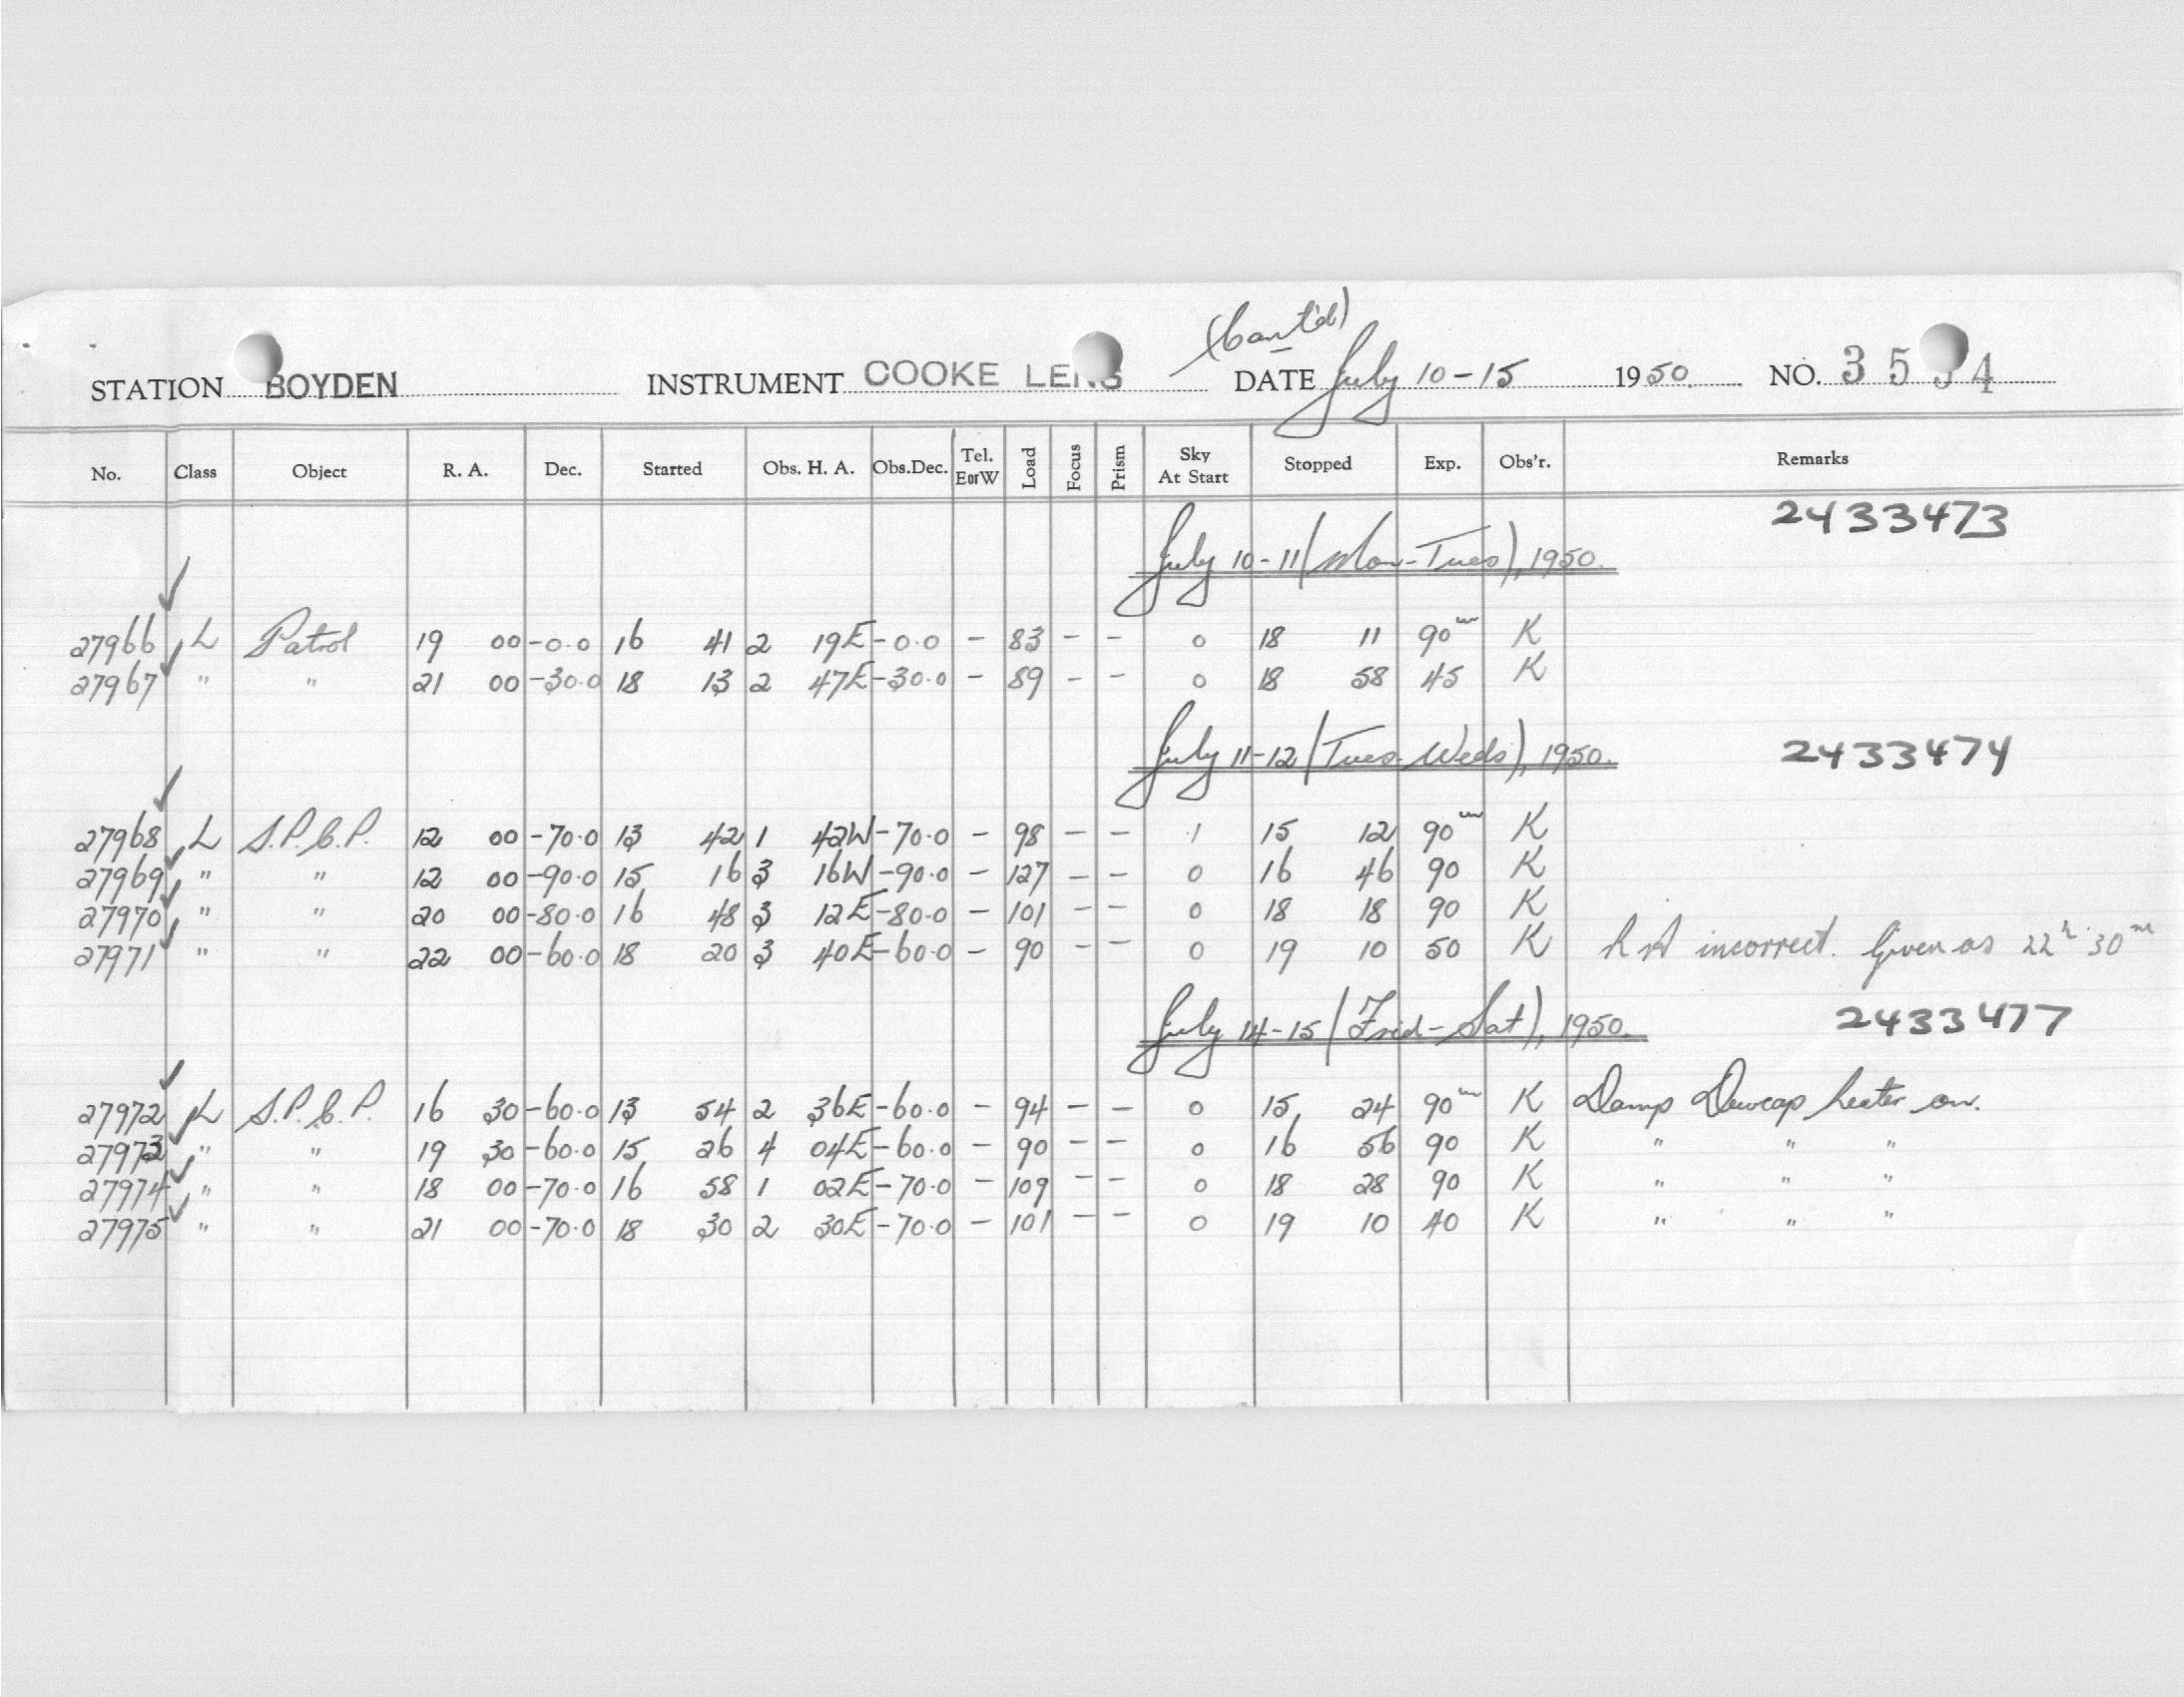 (Cont'd)
STATION BOYDEN INSTRUMENT COOKE LENS DATE July 10-15 1950 NO. 3 5 3 4
No. Class Object R. A. Dec. Started Obs. H. A. Obs.Dec. Tel. EorW Load Focus Prism Sky At Start Stopped Exp. Obs'r. Remarks
2433473
July 10-11 (Mon-Tues), 1950.
27966 L Patrol 19 00 -0.0 16 41 2 19E -0.0 - 83 - - 0 18 11 90m K
27967 " " 21 00 -30.0 18 13 2 47E -30.0 - 89 - - 0 18 58 45 K
July 11-12 (Tues-Weds), 1950. 2433474
27968 L S.P.C.P. 12 00 -70.0 13 42 1 42W -70.0 - 98 - - 1 15 12 90m K
27969 " " 12 00 -90.0 15 16 3 16W -90.0 - 127 - - 0 16 46 90 K
27970 " " 20 00 -80.0 16 48 3 12E -80.0 - 101 - - 0 18 18 90 K
27971 " " 22 00 -60.0 18 20 3 40E -60.0 - 90 - - 0 19 10 50 K RA incorrect. Given as 22h 30m
July 14-15 (Frid-Sat), 1950. 2433477
27972 L S.P.C.P. 16 30 -60.0 13 54 2 36E -60.0 - 94 - - 0 15 24 90m K Damp Dewcap heater on.
27973 " " 19 30 -60.0 15 26 4 04E -60.0 - 90 - - 0 16 56 90 K " " "
27974 " " 18 00 -70.0 16 58 1 02E -70.0 - 109 - - 0 18 28 90 K " " "
27975 " " 21 00 -70.0 18 30 2 30E -70.0 - 101 - - 0 19 10 40 K " " "